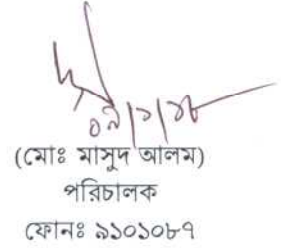 ০৯/১/১৮
(মোঃ মাসুদ আলম)
পরিচালক
ফোনঃ ৯১০১০৮৭